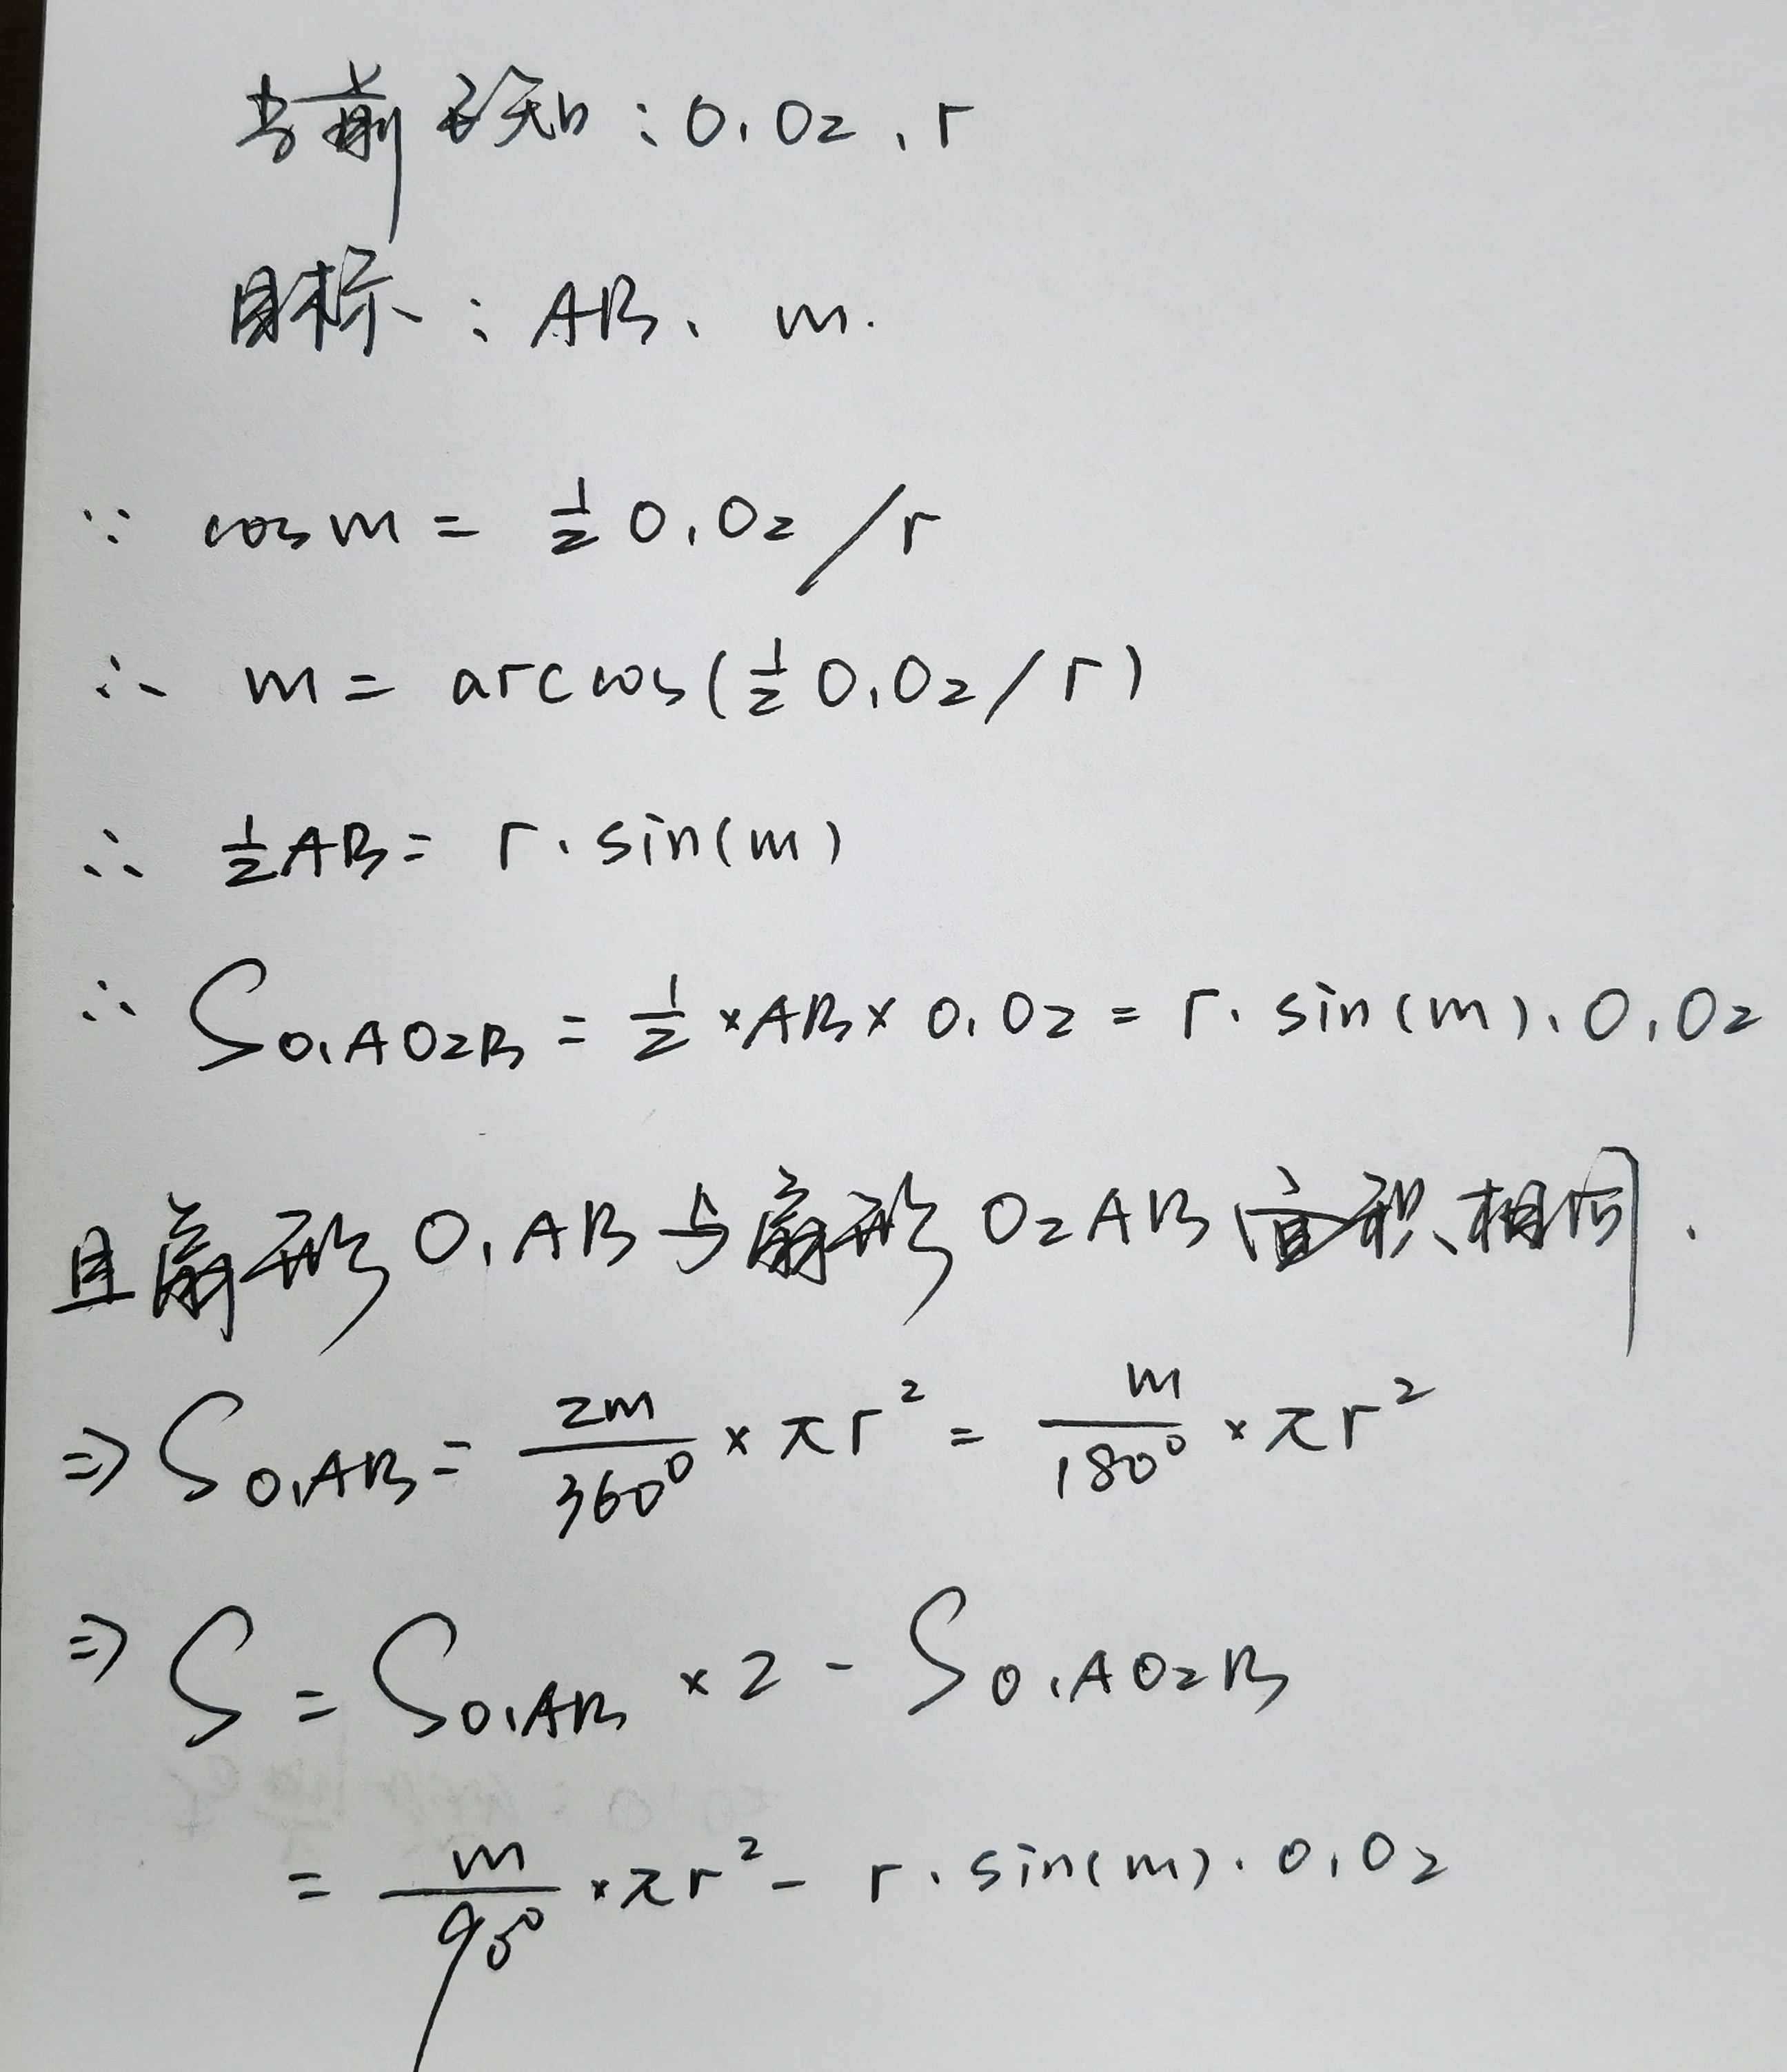 当前已知：O₁O₂、r
目标：AB、m.
∵ cosm = ½O₁O₂/r
∴ m = arccos(½O₁O₂/r)
∴ ½AB = r·sin(m)
∴ S_{O₁AO₂B} = ½×AB×O₁O₂ = r·sin(m)·O₁O₂
且扇形O₁AB与扇形O₂AB面积相同.
⇒ S_{O₁AB} = 2m/360° × πr² = m/180° × πr²
⇒ S = S_{O₁AB} ×2 - S_{O₁AO₂B}
= m/90° ×πr² - r·sin(m)·O₁O₂